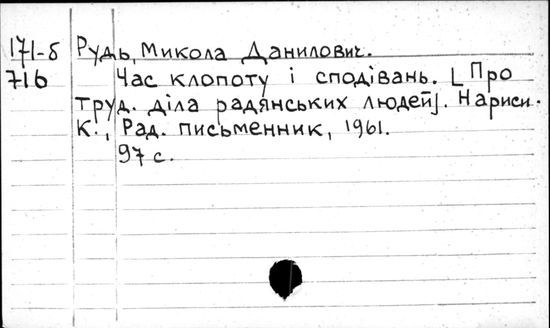 171-б Рудь, Микола Данилович.
716 Час клопоту і сподівань. [Про
труд. діла радянських людей]. Нариси.
К., Рад. письменник, 1961.
97 с.